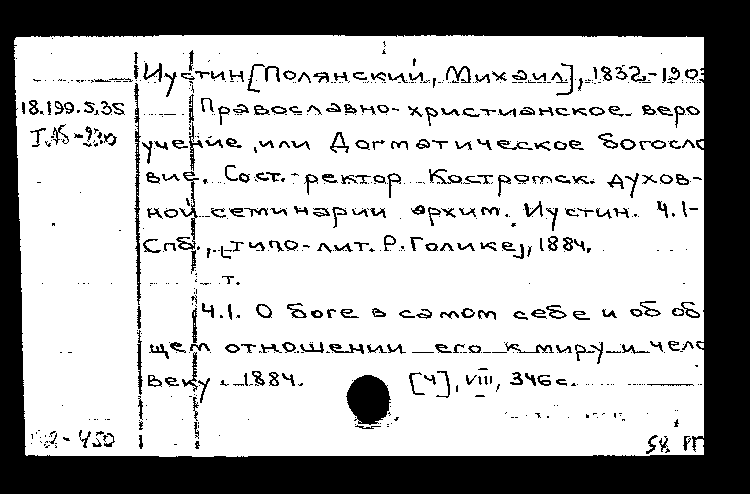 Иустин[Полянский, Михаил], 1832-1903
18.199.5.35
Православно-христианское веро
учение, или Догматическое богосло
вие. Сост.-ректор Костромск. духов-
ной семинарии архим. Иустин. Ч.1-
Спб., [типо-лит. Р.Голике], 1884.
т.
Ч.1. О боге в самом себе и об об
щем отношении его к миру и чело
веку. 1884. [4], VIII, 346с.
-450
58